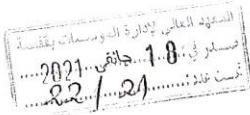 المعهد العالي لإدارة المؤسسات بقفصة
صدر في: 18 جانفي 2021
تحت عدد: 22 / 21